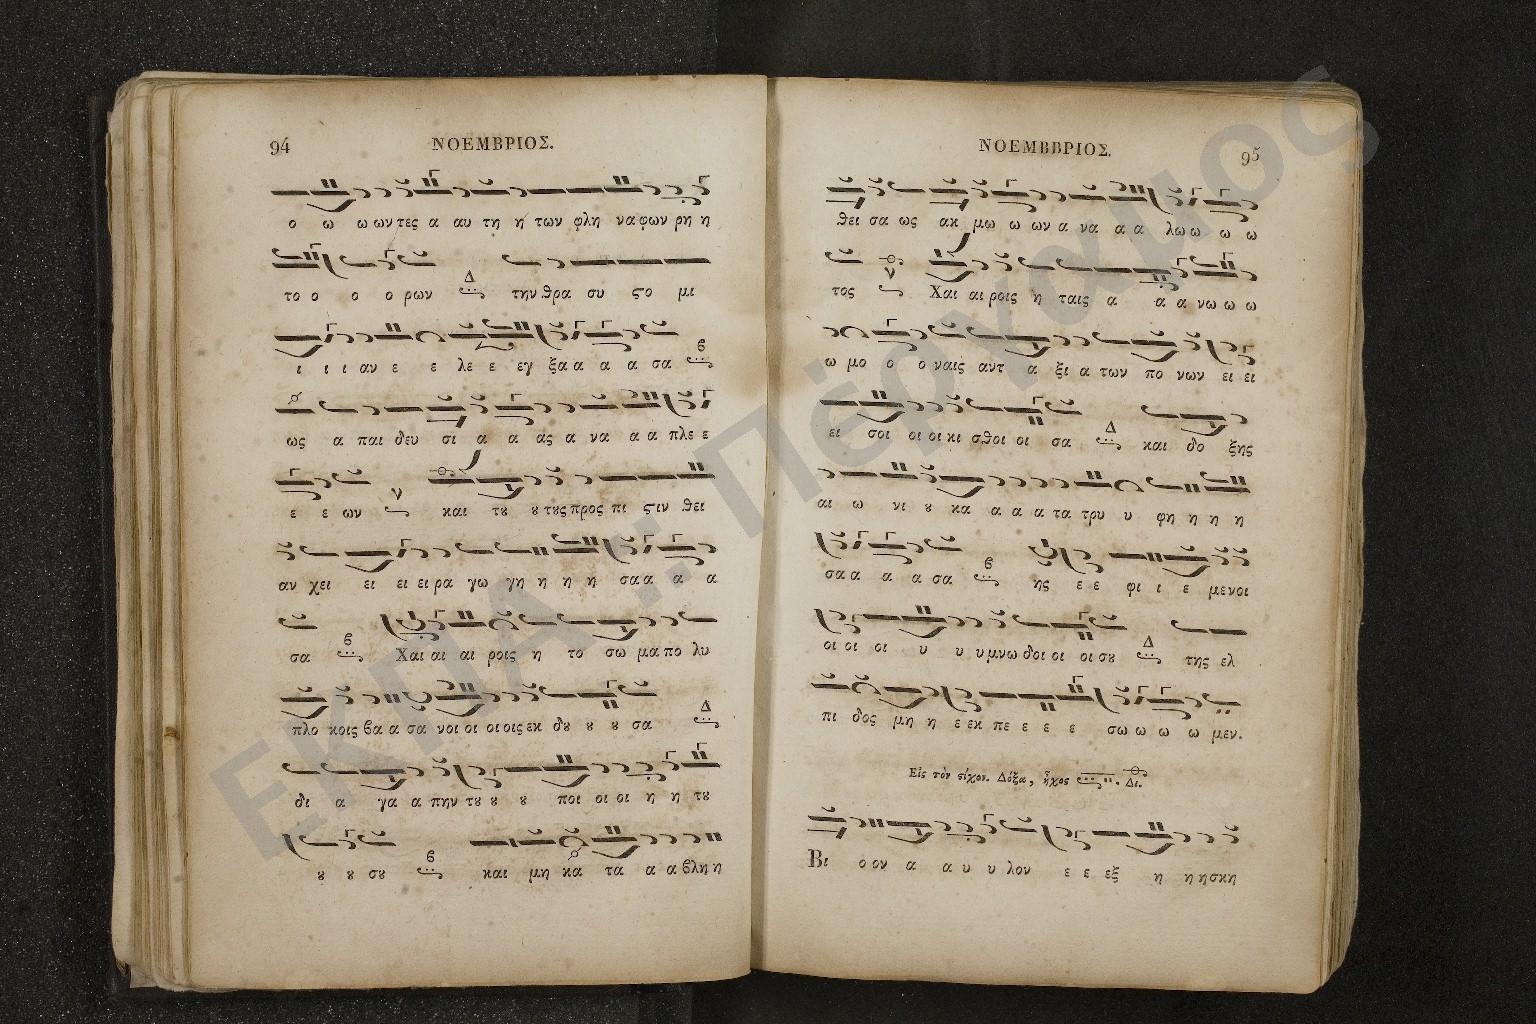 94
ΝΟΕΜΒΡΙΟΣ.
ο ω ω ων τες α αυ τη ή των φλη να φων ρη η
το ο ο ο ρων Δ την θρα συ ϛο μι
ι ι ι αν ε ε λε ε εγ ξα α α α σα ϐ
ως α παι δευ σι α α ας α να α α πλε ε
ε ε ων ν και τȣ ȣ τȣς προς πι ϛιν θει
αν χει ει ει ει ρα γω γη η η η σα α α α
σα ϐ Χαι αι αι ροις η το σω μα πο λυ
πλο κοις βα α σα νοι οι οι οις εκ δȣ ȣ ȣ σα Δ
δι α γα α πην τȣ ȣ ȣ ποι οι οι η η τȣ
ȣ ȣ σȣ ϐ και μη κα τα α α βλη η
ΝΟΕΜΒΒΡΙΟΣ.
95
θει σα ως ακ μω ω ων α να α α λω ω ω ω
τος ν Χαι αι ροις η ταις α α α νω ω ω
ω μο ο ο ναις αντ α ξι α των πο νων ει ει
ει σοι οι οι κι σθοι οι σα Δ και δο ξης
αι ω νι ȣ κα α α α τα τρυ υ φη η η η
σα α α α σα ϐ ής ε ε φι ι ε μενοι
οι οι οι υ υ υ μνω δοι οι οι σȣ Δ της ελ
πι δος μη η ε εκ πε ε ε ε σω ω ω ω μεν.
Εἰς τὸν ϛίχον. Δόξα, ἦχος Δι.
Βι ο ον α α υ υ λον ε ε εξ η η ησκη
ΕΚΠΑ :: Πέργαμος